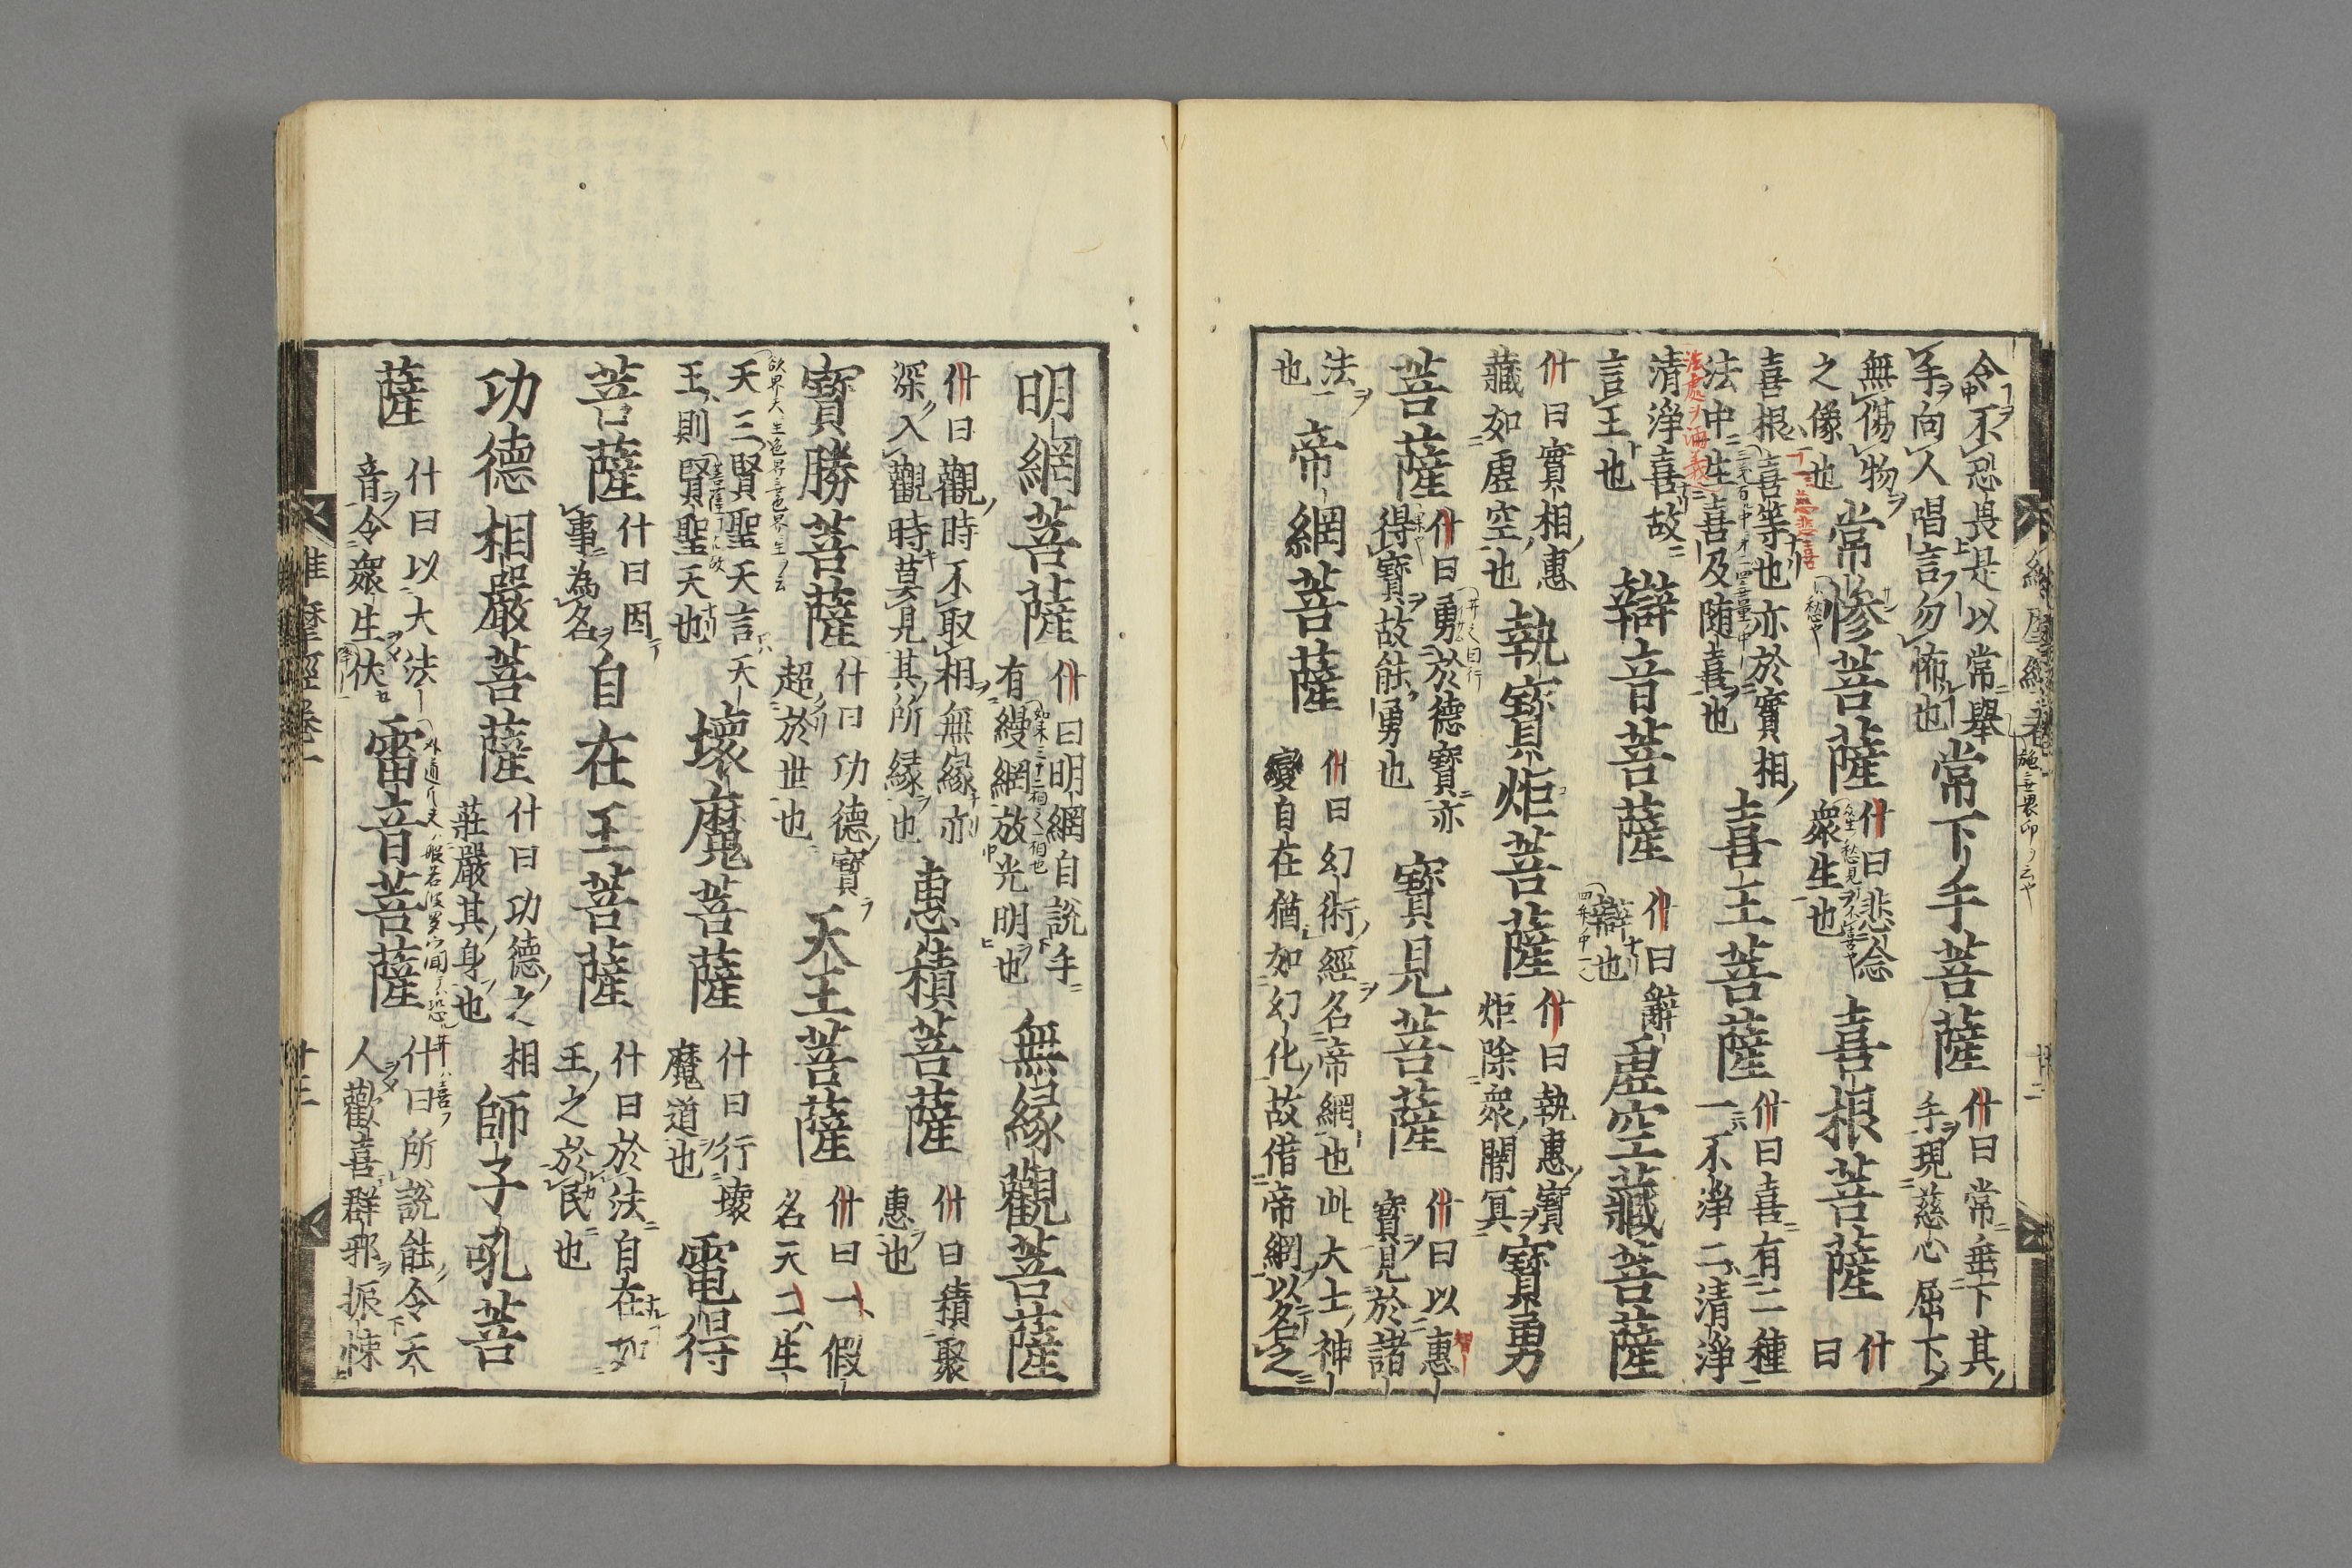 令不恐畏是以常舉
手向人唱言勿怖也
常下手菩薩
什曰常垂下其
手現慈心屈下
無傷物
之像也
常慘菩薩
什曰悲念
衆生也
喜根菩薩
什
曰
喜根喜等也亦於實相
法中生喜及随喜也
喜王菩薩
什曰喜有二種
一不淨二清淨
清淨喜故
言王也
辯音菩薩
什曰辭
辯也
虛空藏菩薩
什曰實相惠
藏如虛空也
執寳炬菩薩
什曰執惠寳
炬除衆闇冥
寳勇
菩薩
什曰勇於德寳亦
得寳故能勇也
寳見菩薩
什曰以惠
寳見於諸
法
也
帝網菩薩
什曰幻術經名帝網也此大士神
變自在猶如幻化故借帝網以名之
明網菩薩
什曰明網自說手
有縵網放光明也
無縁觀菩薩
什曰觀時不取相無縁亦
深入觀時莫見其所縁也
惠積菩薩
什曰積聚
惠也
寳勝菩薩
什曰功德寳
超於世也
天王菩薩
什曰一假
名天二生
天三賢聖天言天
王則賢聖天也
壞魔菩薩
什曰行壞
魔道也
電得
菩薩
什曰因
事為名
自在王菩薩
什曰於法自在如
王之於民也
功德相嚴菩薩
什曰功德之相
莊嚴其身也
師子吼菩
薩
什曰以大法
音令衆生伏
雷音菩薩
什曰所說能令天
人歡喜群邪振悚
維摩經卷一
廿三